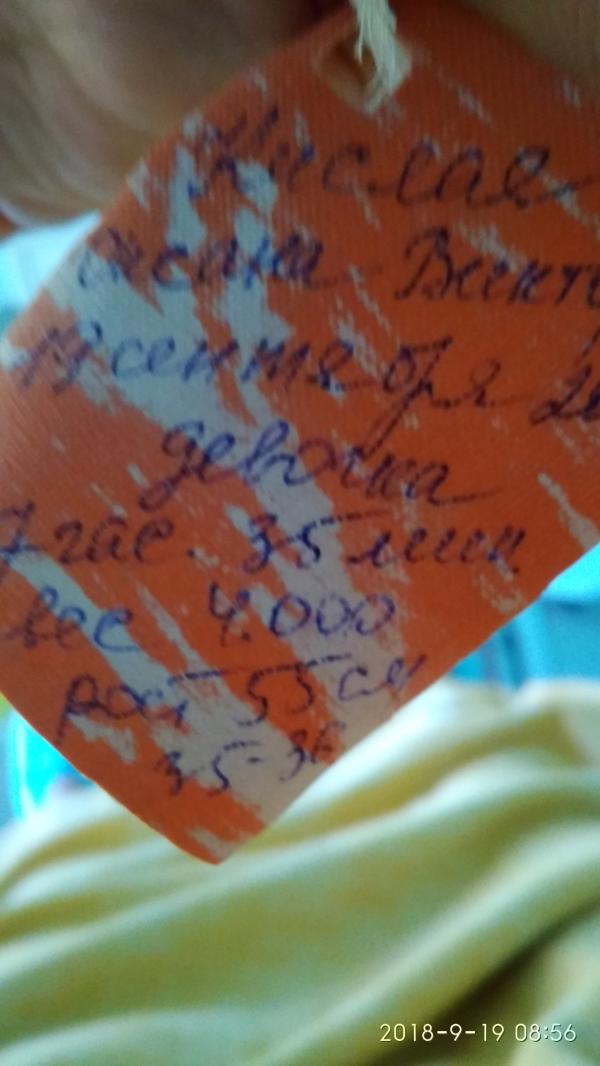 Кислая
Оксана Викто
19 сентября 20
девочка
7 час. 35 мин.
вес 4.000
рост 55 см
35-36
2018-9-19 08:56